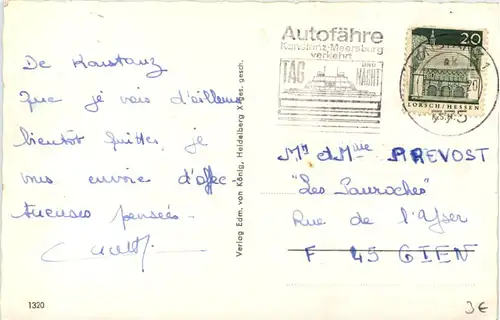 De Konstanz
que je vais d'ailleurs
bientôt quitter, je
vous envoie d'affec-
tueuses pensées -
Verlag Edm. von König, Heidelberg ges. gesch.
1320
Autofähre
Konstanz-Meersburg
verkehrt
TAG UND NACHT
20
LORSCH/HESSEN
775
Mr et Mme PREVOST
"Les Pauroches"
Rue de l'Yser
F 45 GIEN
3€